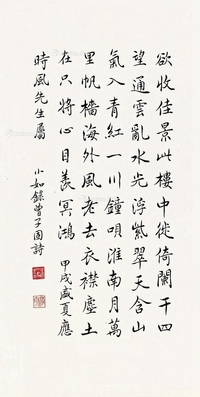 欲收佳景此樓中徙倚闌干四
望通雲亂水光浮紫翠天含山
氣入青紅一川鐘唄淮南月萬
里帆檣海外風老去衣襟塵土
在只將心目羨冥鴻 甲戌盛夏應
時風先生屬
小如錄曾子固詩